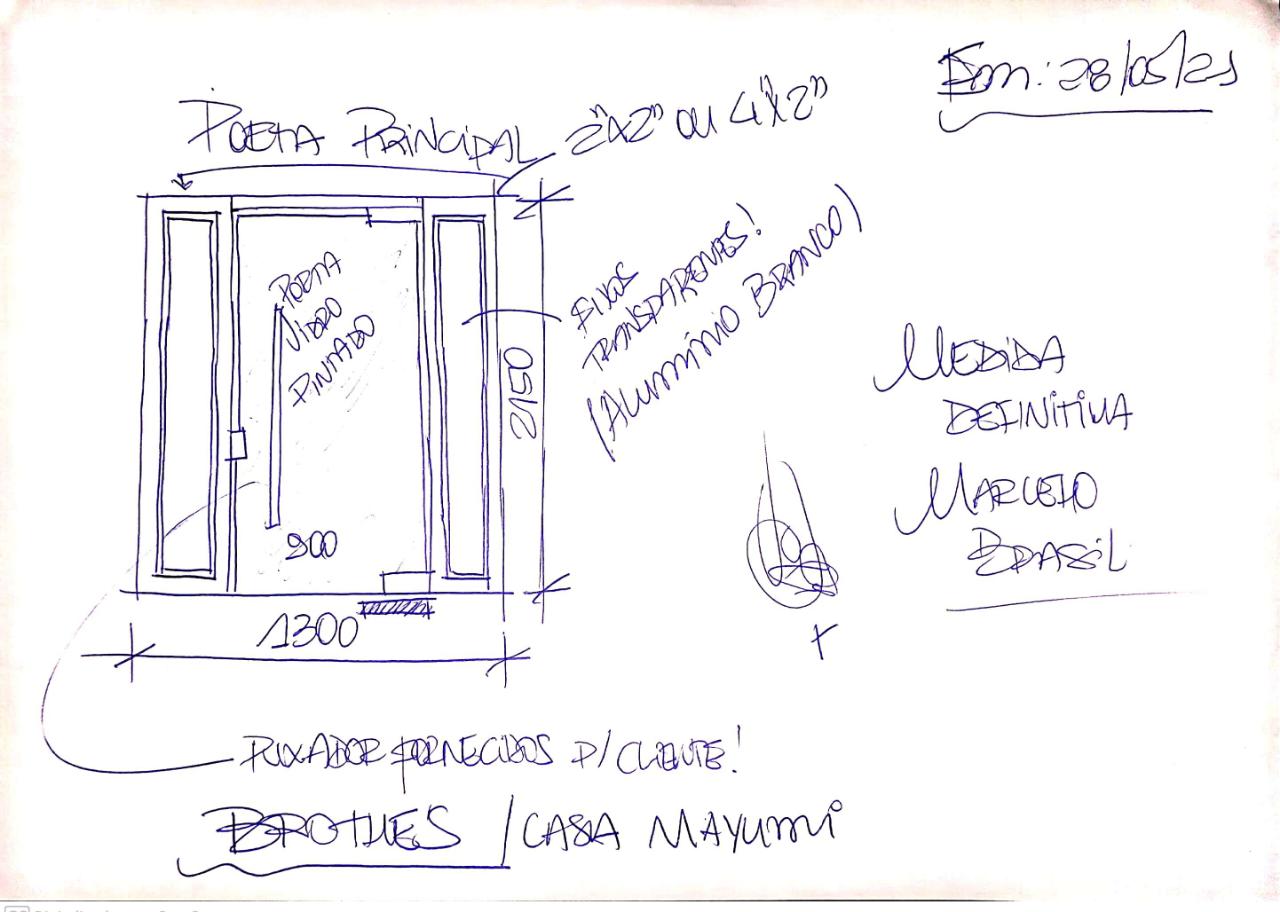 Em: 28/05/21
PORTA PRINCIPAL 2"x2" ou 4"x2"
PORTA
VIDRO
PINTADO
FIXOS
TRANSPARENTES!
(ALUMINIO BRANCO)
2150
900
1300
MEDIDA
DEFINITIVA
MARCELO
BRASIL
PUXADOR FORNECIDOS P/ CLIENTE!
BROTHES / CASA MAYUMI